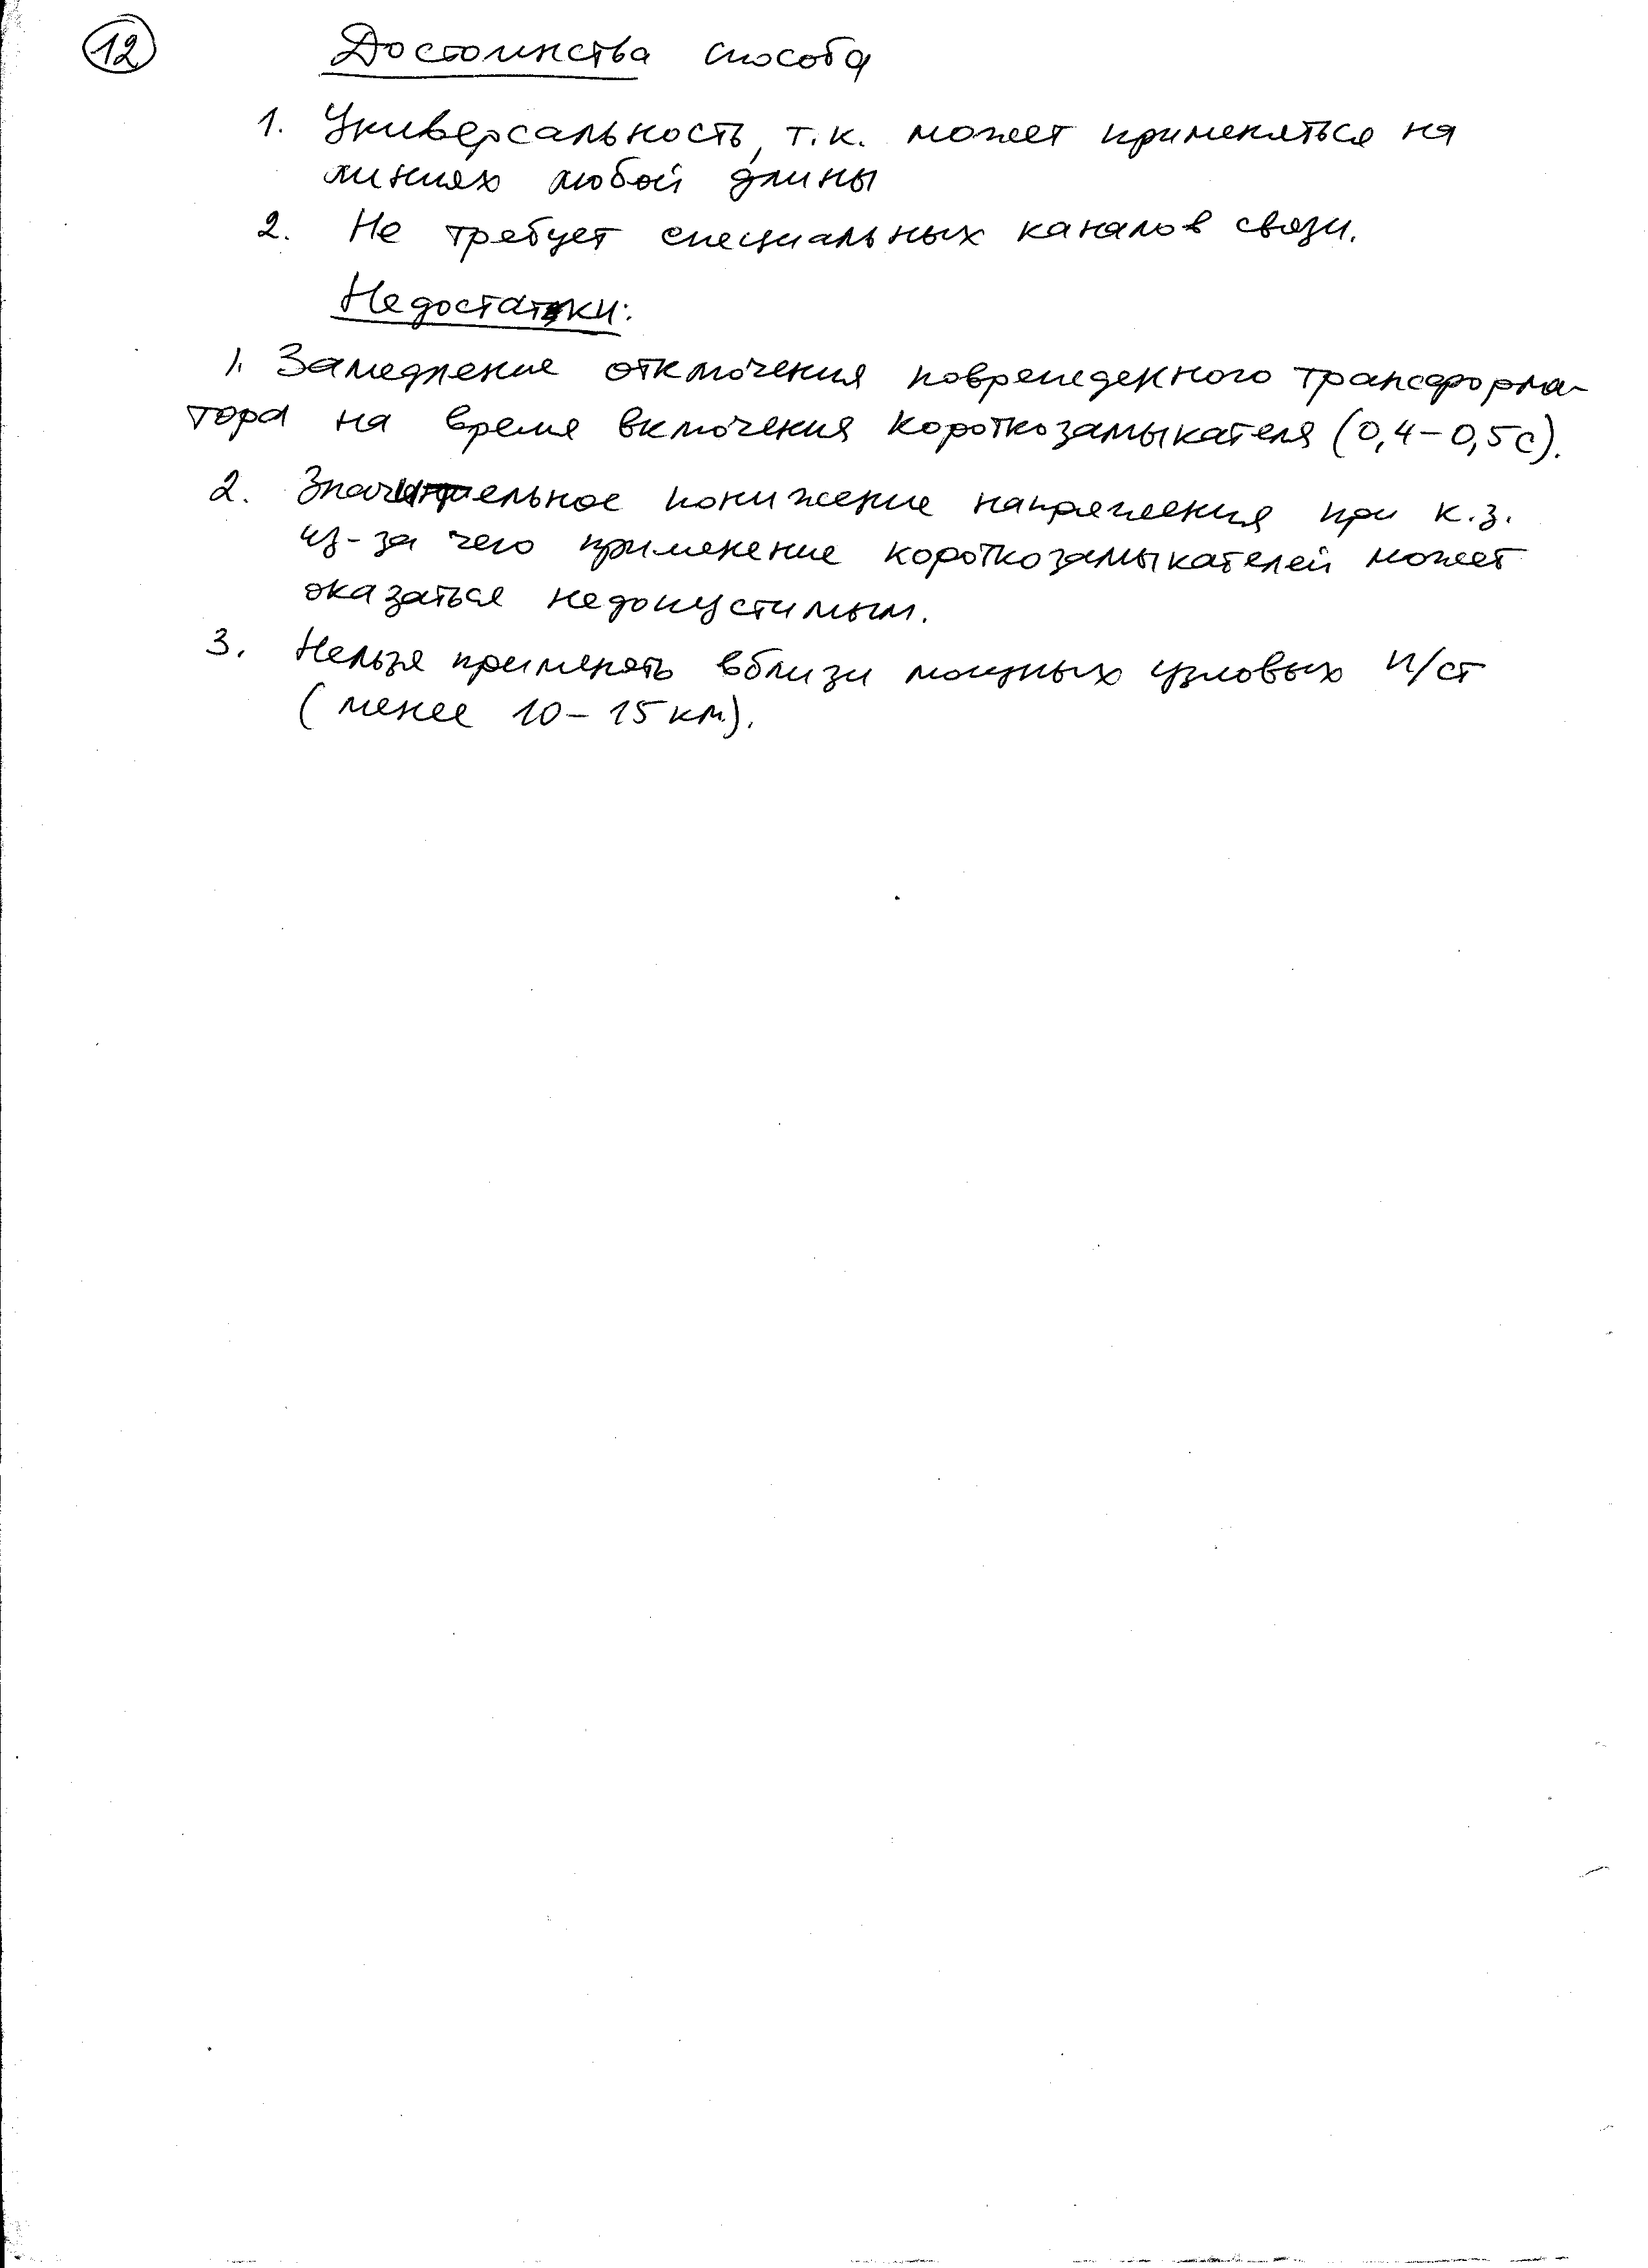 12
Достоинства способа
1. Универсальность, т.к. может применяться на
линиях любой длины
2. Не требует специальных каналов связи.
Недостатки:
1. Замедление отключения поврежденного трансформа-
тора на время включения короткозамыкателя (0,4-0,5с).
2. Значительное понижение напряжения при к.з.
из-за чего применение короткозамыкателей может
оказаться недопустимым.
3. Нельзя применять вблизи мощных узловых п/ст
(менее 10-15км).